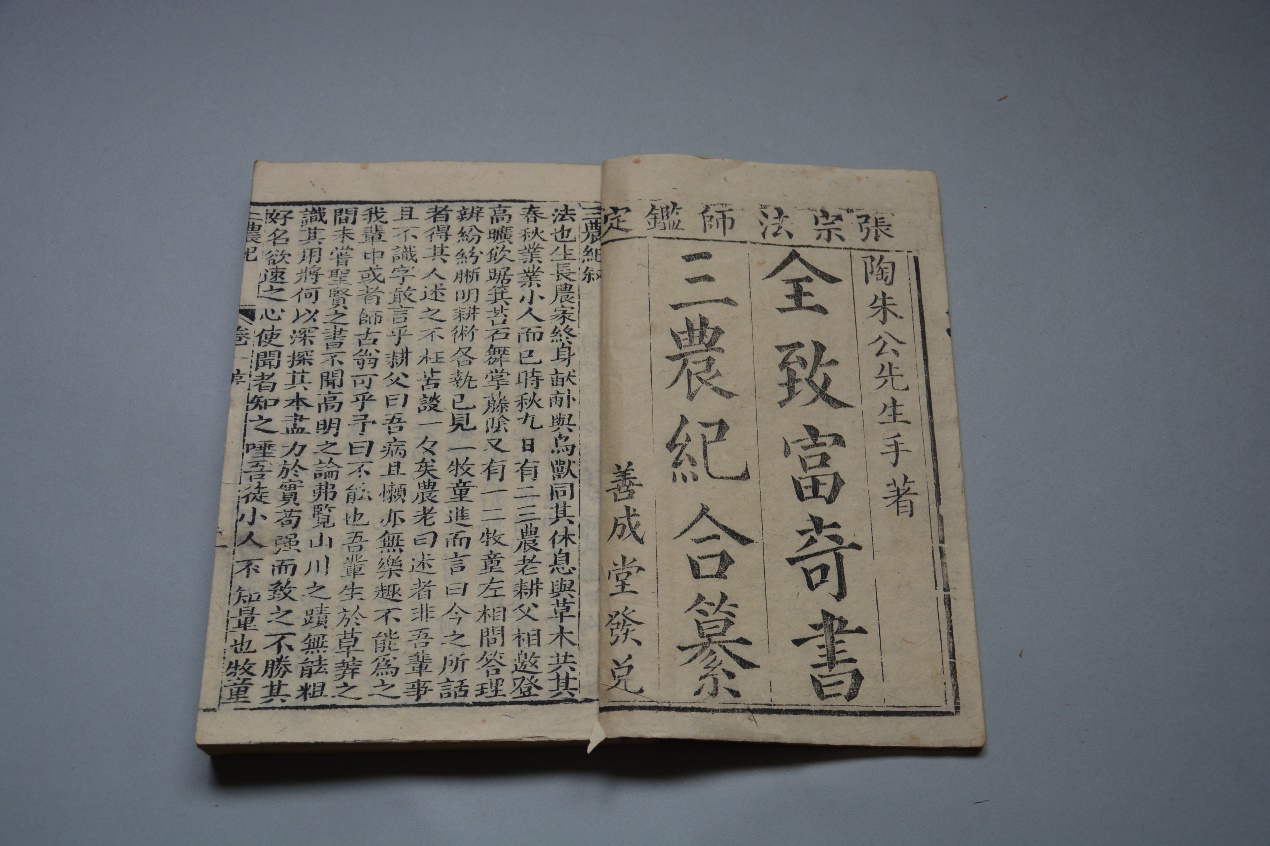 張宗法師鑑定
陶朱公先生手著
全致富奇書
三農紀合纂
善成堂發兌
三農紀叙
法也生長農家終身献畝與鳥獸同其休息與草木共其
春秋業業小人而已時秋九日有二三農老耕父相邀登
高曠飲踞箕苔石舞掌藤陰又有一二牧童左相問答理
辨紛紛腑明耕術各執已見一牧童進而言曰今之所話
者得其人述之不枉苦談一々矣農老曰述者非吾輩事
且不識字敢言乎耕父曰吾病且懶亦無樂趣不能為之
我輩中或者師古翁可乎予曰不能也吾輩生於草莽之
間未嘗聖賢之書不聞高明之論弗覧山川之蹟無能粗
識其用將何以深探其本盡力於實苟强而致之不勝其
好名欲速之心使聞者知之唾吾徒小人不知量也牧童
三農紀 卷一 序